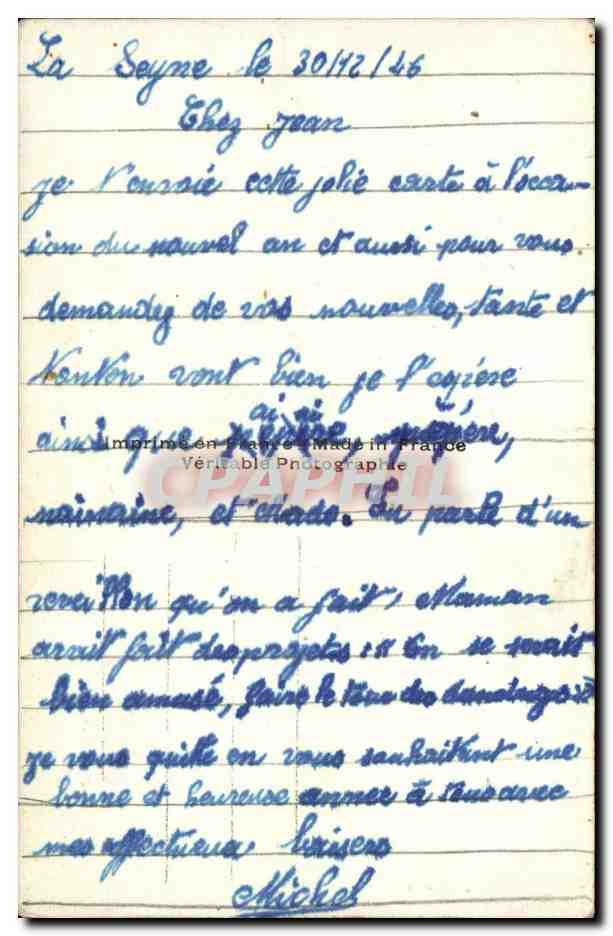 La Seyne le 30/12/46
Chez Jean
je t'envoie cette jolie carte à l'occa-
sion du nouvel an et aussi pour vous
demandez de vos nouvelles, tante et
Tonton vont bien je l'espère
ainsi que
Imprimé en France - Made in France
Véritable Photographie
CPAPHIL
et Mado. Tu parle d'un
reveillon qu'on a fait, Maman
avait fait des projets : " On se serait
bien amusé, faire le tour des
je vous quitte en vous souhaitant une
bonne et heureuse année à tous avec
mes affectueux baisers
Michel